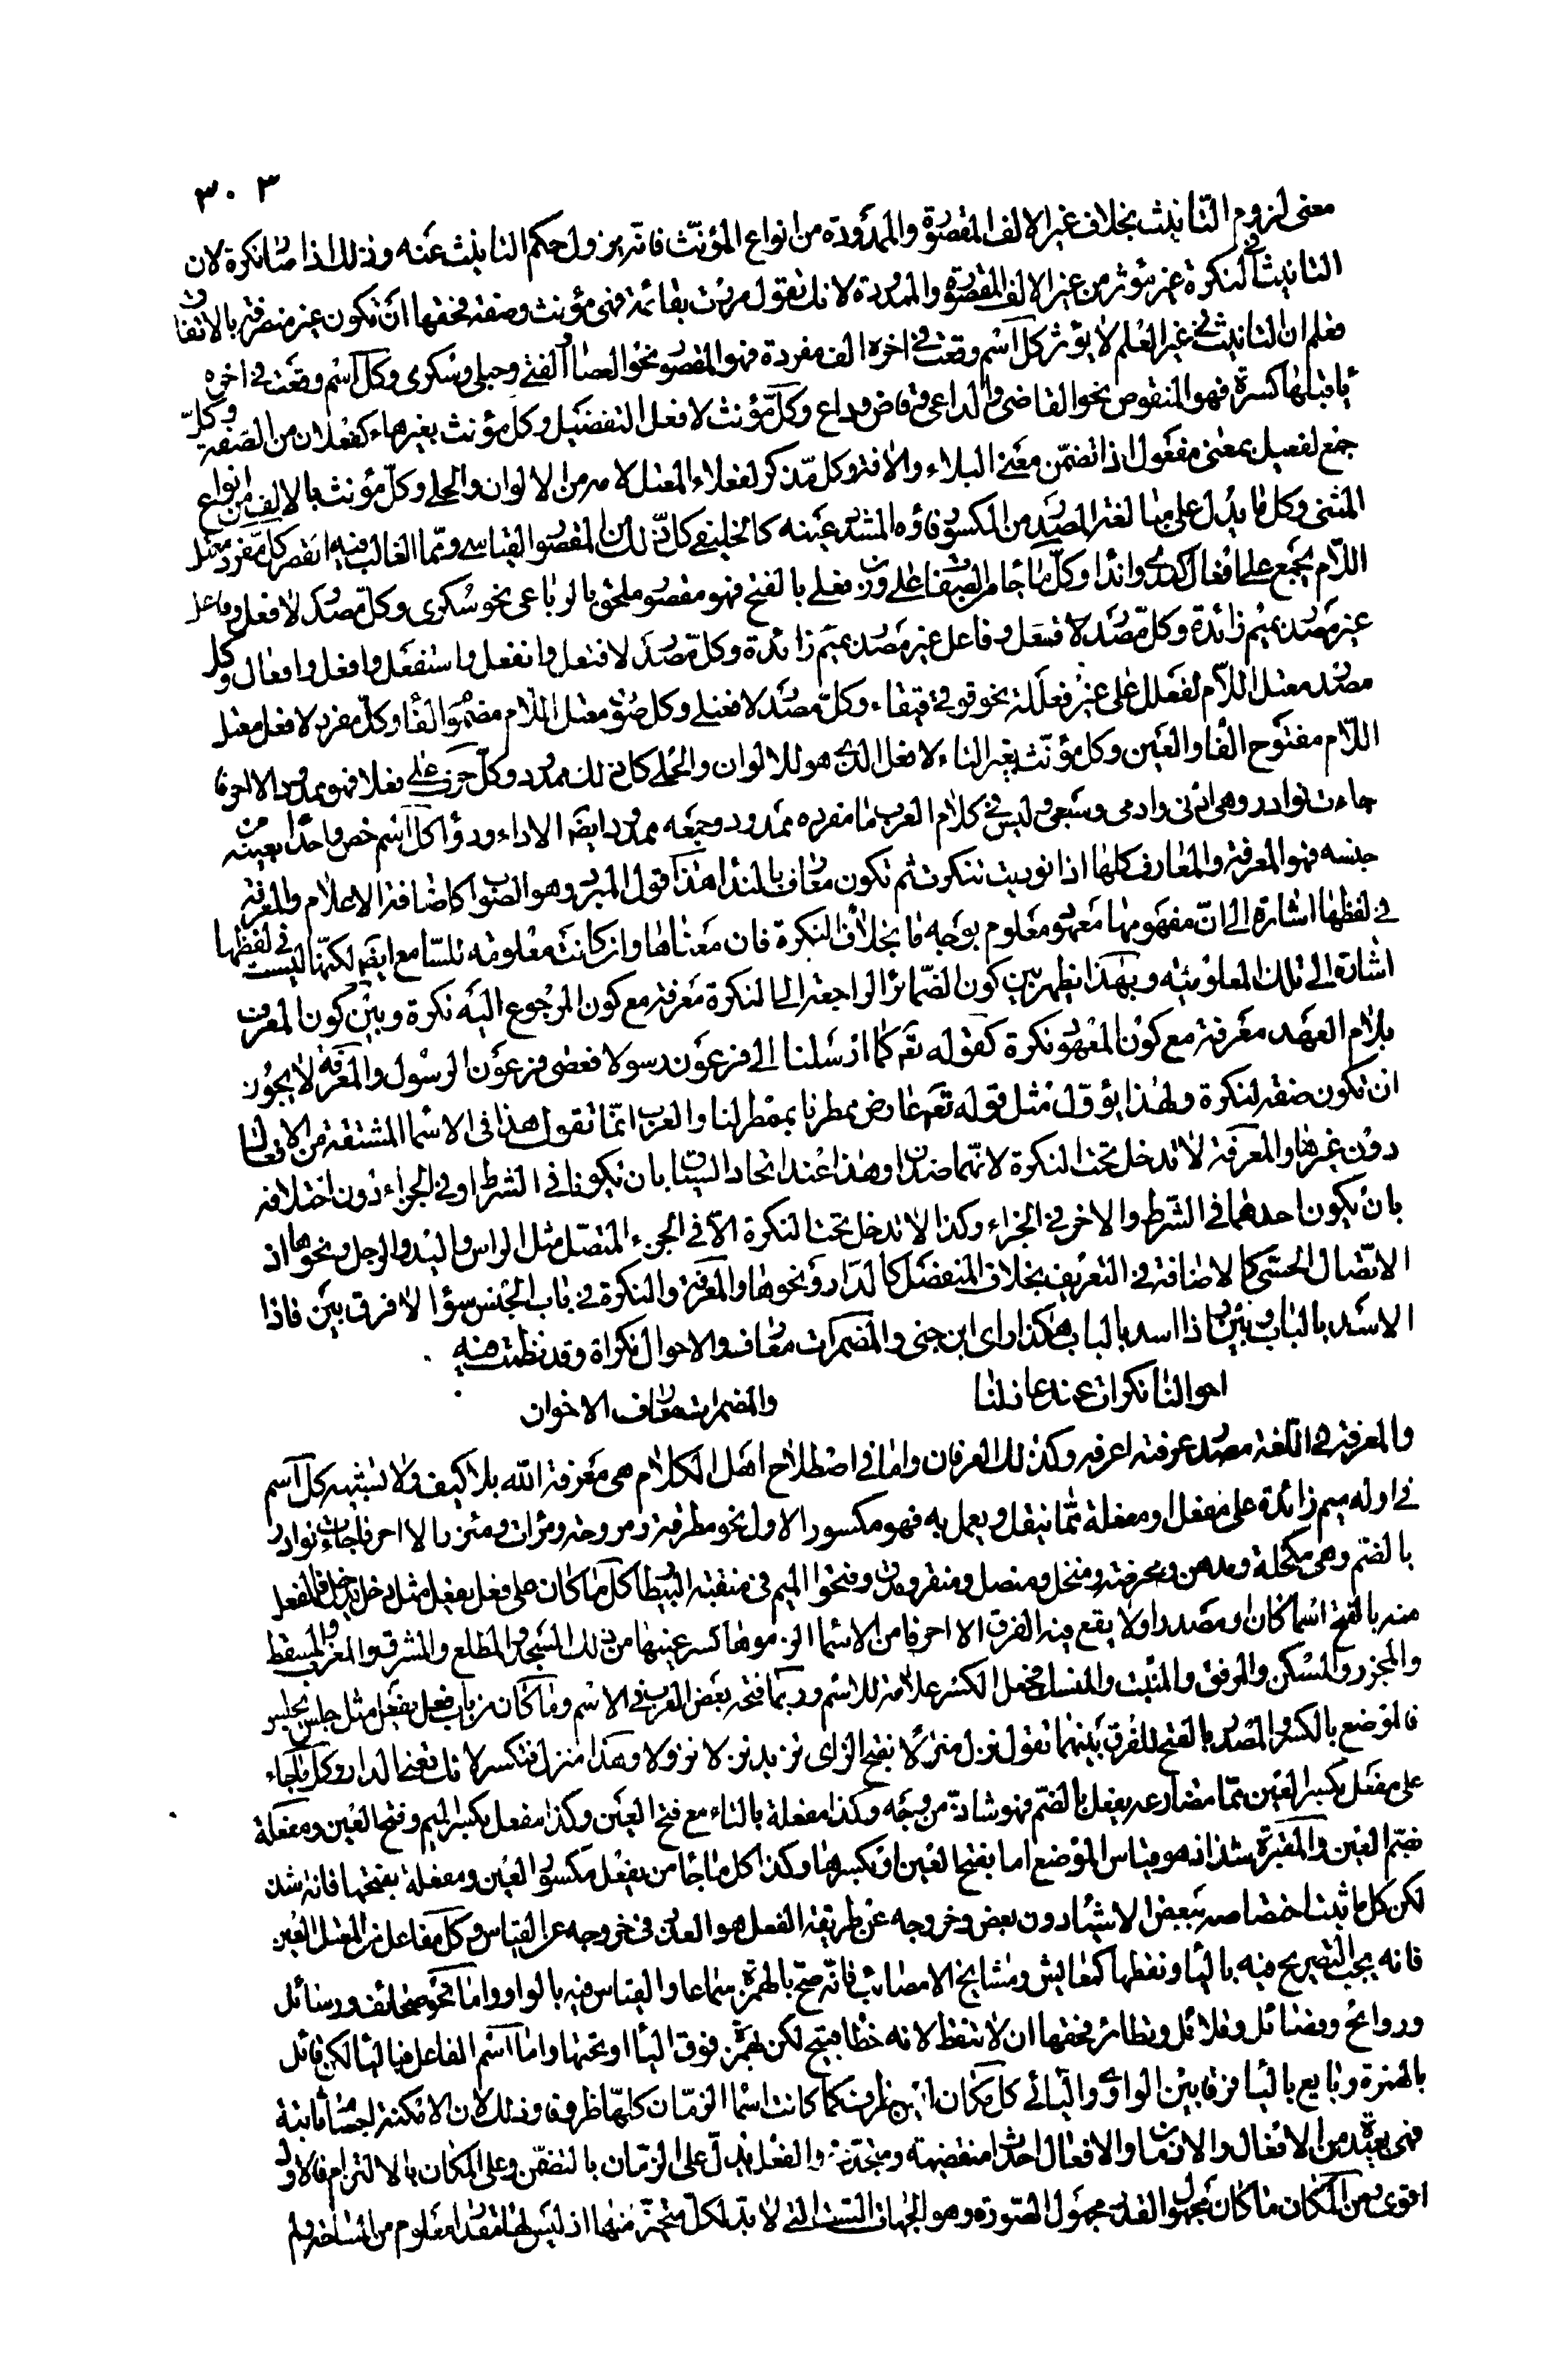 ٣٠٣
معنى لزوم التأنيث بخلاف غير الالف المقصورة والممدودة من انواع المؤنث فانه يزول حكم التانيث عنه وذلك اذا صار نكرة لان
التانيث في النكرة غير مؤثر من غير الالف المقصورة والممدودة لانك تقول مررت بقائمة فهى مؤنث وصفة فحقها ان تكون غير منصرفة بالاتفاق
فعلم ان التانيث في غير العلم لا يؤثر كل اسم وقعت في اخره الف مفردة فهو المقصور نحو العصا والفتى وحبلى وسكرى وكل اسم وقعت في اخره
يا قبلها كسرة فهو المنقوص نحو القاضى والداعى وقاض وداع وكل مؤنث لافعل التفضيل وكل مؤنث بغير هاء كفعلان من الصفة وكل
جمع لفعيل بمعنى مفعول اذا تضمن معنى البلاء والافة وكل مذكر لفعلاء المعتل لامه من الالوان والحلى وكل مؤنث بالالف من انواع
المثنى وكل ما يدل على مبالغة المصدر من المكسور فاؤه المشدد عينه كالخليفى كل ذلك من المقصور القياسى ومما الغالب فيه القصر كل مفرد معتل
اللام يجمع على افعال كندى وانداء وكل ما جا من الصفة على وزن فعلى بالفتح فهو مقصور ملحق بالرباعى نحو سكرى وكل مصدر لافعل وفاعل
غير مصدر بميم زائدة وكل مصدر لافتعل وانفعل واستفعل وافعل وافعال وكل
مصدر معتل اللام لفعلل على غير فعللة نحو قوقى قيقاء وكل مصدر لافعنلى وكل صوت معتل اللام مضموم الفا وكل مفرد لافعل معتل
اللام مفتوح الفا والعين وكل مؤنث بغير التاء لافعل الذى هو للالوان والحلى كل ذلك ممدود وكل حرف على فعلا فهو ممدود الا احرفا
جاءت نوادر وهى اربى وادمى وشعبى وليس في كلام العرب ما مفرده ممدود وجمعه ممدود ايضا الا داء ودؤاء كل اسم خص واحدا بعينه من
جنسه فهو المعرفة والمعارف كلها اذا نوديت تنكرت ثم تكون معارف بالندا هذا قول المبرد وهو الصواب كاضافة الاعلام والمعرفة
في لفظها اشارة الى ان مفهومها معهود معلوم بوجه ما بخلاف النكرة فان معناها وان كانت معلومة للسامع ايضا لكنها ليست في لفظها
اشارة الى تلك المعلومية وبهذا يظهر بين كون الضمائر الراجعة الى النكرة معرفة مع كون المرجوع اليه نكرة وبين كون المعرف
بلام العهد معرفة مع كون المعهود نكرة كقوله تعم كما ارسلنا الى فرعون رسولا فعصى فرعون الرسول والمعرفة لا يجوز
ان تكون صفة لنكرة ولهذا يؤول مثل قوله تعم عارض ممطرنا بممطر لنا والعرب انما تقول هذا فى الاسما المشتقة من الافعال
دون غيرها والمعرفة لا تدخل تحت النكرة لانهما ضدان وهذا عند اتحاد السياق بان يكونا في الشرط او في الجزاء دون اختلافه
بان يكون احدهما في الشرط والاخر في الجزاء وكذا لا تدخل تحت النكرة الا في الجزء المتصل مثل الراس واليد والرجل ونحوها اذ
الاتصال الحسى كالاضافة في التعريف بخلاف المنفصل كالدار ونحوها والمعرفة والنكرة في باب الجنس سواء لا فرق بين فاذا
الاسد بالباب وبين فاذا اسد بالباب هكذا راى ابن جنى والمضمرات معارف والاحوال نكرات وقد نظمت فيه
احوالنا نكرات عند عاذلنا والمضمرات معارف الاخوان
والمعرفة في اللغة مصدر عرفته اعرفه وكذلك العرفان واما في اصطلاح اهل الكلام هى معرفة الله بلا كيف ولا تشبيه كل اسم
في اوله ميم زائدة على مفعل او مفعلة مما ينقل ويعمل به فهو مكسور الاول نحو مطرقة ومروحة ومرات ومئزر الا احرفا جاءت نوادر
بالضم وهى مكحلة ومدهن ومحرضة ومنخل ومنصل ومنقر ومدق وفتحوا الميم في منقبة البيطار كل ما كان على فعل يفعل مثل دخل يدخل فالمفعل
منه بالفتح اسما كان او مصدرا ولا يقع فيه الفرق الا احرفا من الاسما الزموها كسر عينها من ذلك المسجد والمطلع والمشرق والمغرب والمسقط
والمجزر والمسكن والمرفق والمنبت والمنسك فجعل الكسر علامة للاسم وربما فتحه بعض العرب في الاسم وما كان من باب فعل يفعل مثل جلس يجلس
فالموضع بالكسر والمصدر بالفتح للفرق بينهما تقول نزل منزلا بفتح الزاى تريد نزل نزولا وهذا منزله فتكسر لانك تعنى الدار وكل ما جاء
على مفعل بكسر العين مما مضارعه يفعل بالضم فهو شاذ من وجه وكذا مفعلة بالتاء مع فتح العين وكذا مفعل بكسر الميم وفتح العين ومفعلة
بضم العين والمقبرة شذ اذ هو قياس الموضع اما بفتح العين او بكسرها وكذا كل ما جا من يفعل مكسور العين ومفعلة بفتحها فانه شذ
لكن كل ما ثبت اختصاصه ببعض الاشيا دون بعض وخروجه عن طريقة الفعل هو العذر في خروجه عن القياس وكل مفاعل من المعتل العين
فانه يجب التصريح فيه باليا ونقطها كمعايش ومشايخ الا مصائب فانه صح بالهمزة سماعا والقياس فيه بالواو واما نحو صحائف ورسائل
وروائح وفضائل وقلائل ونظائر فحقها ان لا تنقط لانه خطا قبيح لكن بهمز فوق اليا او تحتها واما اسم الفاعل فباليا لكن قائل
بالهمزة وبايع باليا فرقا بين الواوى واليائى كل مكان ليس بظرف كما كانت اسما الزمان كلها ظروفا وذلك لان الامكنة اجسام ثابتة
فهى بعيدة من الافعال والازمان والافعال احداث منقضية ومتجددة والفعل يدل على الزمان بالتضمن وعلى المكان بالالتزام فالاول
اقوى من المكان ما كان مجهول القدر مجهول الصورة وهو الجهات الست التى لا بد لكل متحيز منها اذ ليس لها مقدار معلوم من المساحة ولم